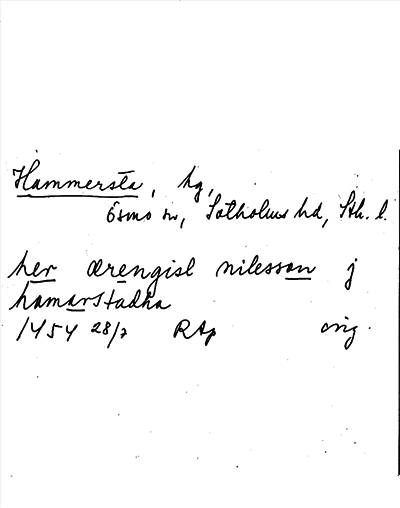 Hammersta, hg,
Ösmo sn, Sotholms hd, Sth. l.
her ærengisl nilesson j
hamarstadha
1454 28/7 RAp orig.